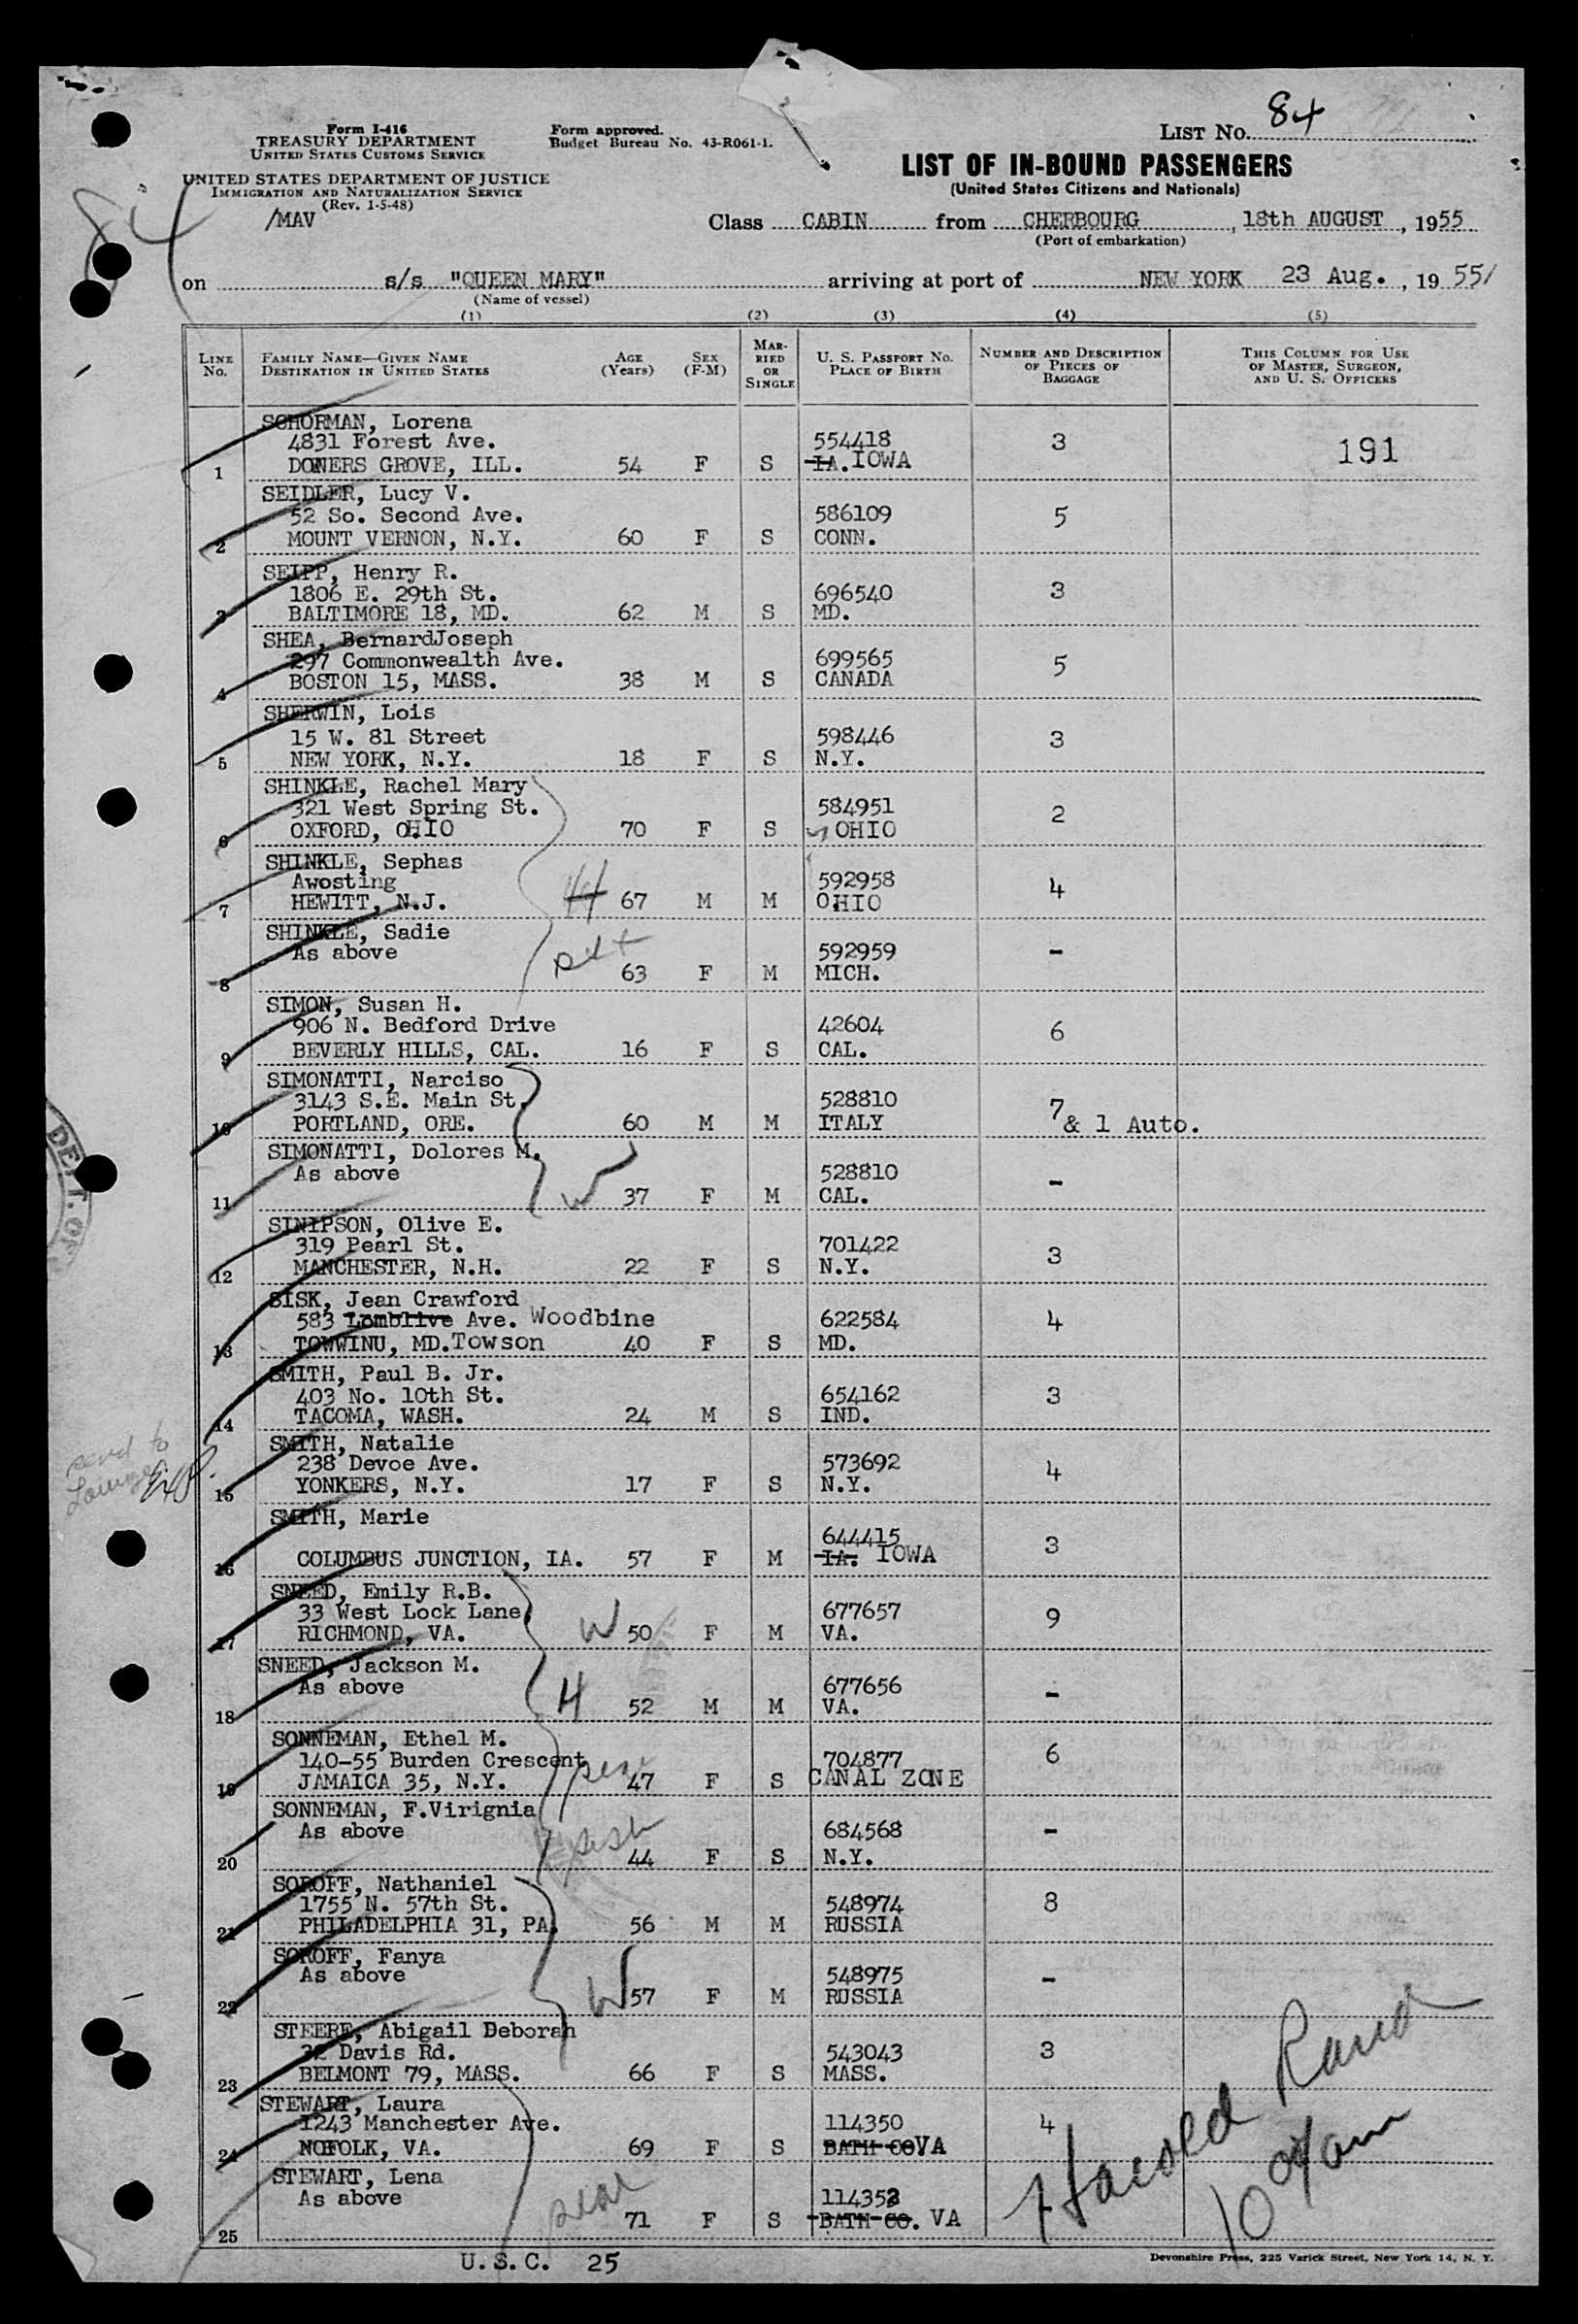 Form I-416
TREASURY DEPARTMENT
UNITED STATES CUSTOMS SERVICE
UNITED STATES DEPARTMENT OF JUSTICE
IMMIGRATION AND NATURALIZATION SERVICE
(Rev. 1-5-48)
/MAV
84
Form approved.
Budget Bureau No. 43-R061-1.
LIST No. 84
LIST OF IN-BOUND PASSENGERS
(United States Citizens and Nationals)
Class CABIN from CHERBOURG, 18th AUGUST, 1955
(Port of embarkation)
on s/s "QUEEN MARY" arriving at port of NEW YORK 23 Aug., 1955/
(Name of vessel)
(1) (2) (3) (4) (5)
LINE No. FAMILY NAME—GIVEN NAME DESTINATION IN UNITED STATES AGE (Years) SEX (F-M) MARRIED OR SINGLE U. S. PASSPORT NO. PLACE OF BIRTH NUMBER AND DESCRIPTION OF PIECES OF BAGGAGE THIS COLUMN FOR USE OF MASTER, SURGEON, AND U. S. OFFICERS
SCHORMAN, Lorena
4831 Forest Ave. 554418 3 191
1 DONERS GROVE, ILL. 54 F S IA. IOWA
SEIDLER, Lucy V.
52 So. Second Ave. 586109 5
2 MOUNT VERNON, N.Y. 60 F S CONN.
SEIPP, Henry R.
1806 E. 29th St. 696540 3
3 BALTIMORE 18, MD. 62 M S MD.
SHEA, BernardJoseph
297 Commonwealth Ave. 699565 5
4 BOSTON 15, MASS. 38 M S CANADA
SHERWIN, Lois
15 W. 81 Street 598446 3
5 NEW YORK, N.Y. 18 F S N.Y.
SHINKLE, Rachel Mary
321 West Spring St. 584951 2
6 OXFORD, OHIO 70 F S OHIO
SHINKLE, Sephas
Awosting 592958 4
7 HEWITT, N.J. H 67 M M OHIO
SHINKLE, Sadie
As above 592959 -
8 63 F M MICH.
SIMON, Susan H.
906 N. Bedford Drive 42604 6
9 BEVERLY HILLS, CAL. 16 F S CAL.
SIMONATTI, Narciso
3143 S.E. Main St. 528810 7 & 1 Auto.
10 PORTLAND, ORE. 60 M M ITALY
SIMONATTI, Dolores M.
As above 528810 -
11 W 37 F M CAL.
SINIPSON, Olive E.
319 Pearl St. 701422 3
12 MANCHESTER, N.H. 22 F S N.Y.
SISK, Jean Crawford
583 Lomblive Ave. Woodbine 622584 4
13 TOWWINU, MD. Towson 40 F S MD.
SMITH, Paul B. Jr.
403 No. 10th St. 654162 3
14 TACOMA, WASH. 24 M S IND.
SMITH, Natalie
238 Devoe Ave. 573692 4
send to
15 YONKERS, N.Y. 17 F S N.Y.
SMITH, Marie
644415 3
16 COLUMBUS JUNCTION, IA. 57 F M IA. IOWA
SNEED, Emily R.B.
33 West Lock Lane, 677657 9
17 RICHMOND, VA. W 50 F M VA.
SNEED, Jackson M.
As above 677656 -
18 H 52 M M VA.
SONNEMAN, Ethel M.
140-55 Burden Crescent 704877 6
19 JAMAICA 35, N.Y. 47 F S CANAL ZONE
SONNEMAN, F.Virignia
As above 684568 -
20 44 F S N.Y.
SOROFF, Nathaniel
1755 N. 57th St. 548974 8
21 PHILADELPHIA 31, PA. 56 M M RUSSIA
SOROFF, Fanya
As above 548975 -
22 W 57 F M RUSSIA
STEERE, Abigail Deborah
32 Davis Rd. 543043 3
23 BELMONT 79, MASS. 66 F S MASS.
STEWART, Laura
1243 Manchester Ave. 114350 4
24 NOFOLK, VA. 69 F S BATH CO VA
STEWART, Lena
As above
25 71 F S BATH CO. VA
Harold Rand
U.S.C. 25
Devonshire Press, 225 Varick Street, New York 14, N. Y.
DEPT. OF